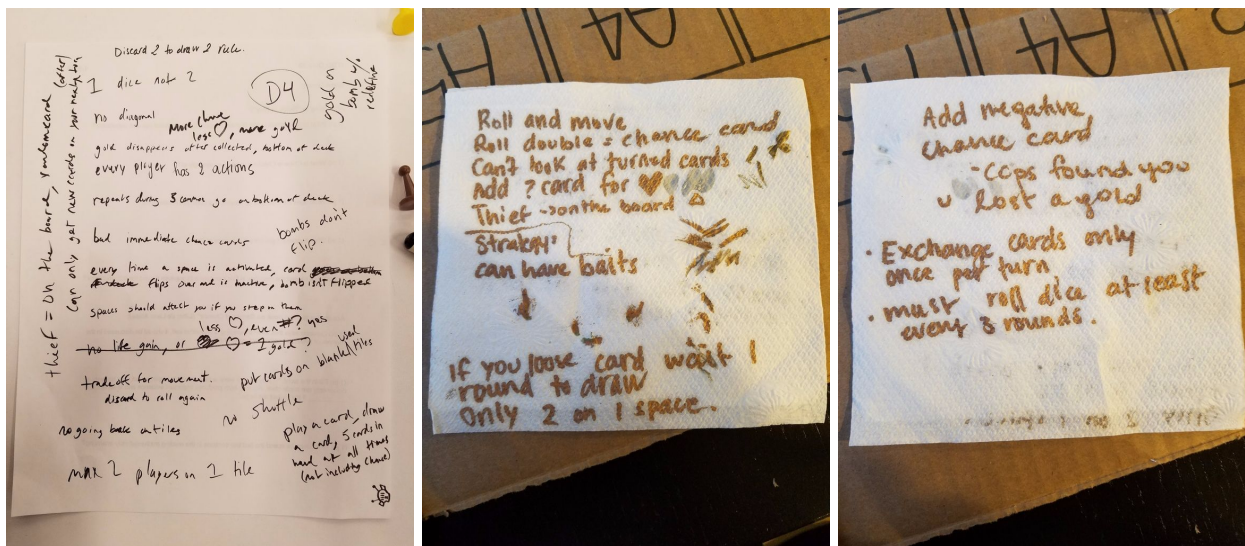 Discard 2 to draw 2 rule.
1 dice not 2
D4
gold on
bombs w/
redefine
no diagonal
more chance
less ♡, more gold
gold disappears after collected, bottom of deck
every player has 2 actions
repeats during 3 come go on bottom of deck
bad immediate chance cards
bombs don't
flip.
every time a space is activated, card
flips over and is inactive, bomb isn't flipped
spaces should attack you if you step on them
less ♡, even #? yes
no life gain, or ♡ = 1 gold?
trade off for movement.
discard to roll again
put cards on blank/used tiles
no shuffle
no going back on tiles
play a card, draw
a card, 5 cards in
hand at all times
(not including chance)
max 2 players on 1 tile
thief = on the board, random card
can only get new cards on your next turn (after)
Roll and move
Roll double = chance card
Can't look at turned cards
Add ? card for ♥
Thief → on the board
Strategy:
can have baits
If you loose card wait 1
round to draw
Only 2 on 1 space.
Add negative
chance card
- Cops found you
Lost a gold
• Exchange cards only
once per turn
• must roll dice at least
every 3 rounds.